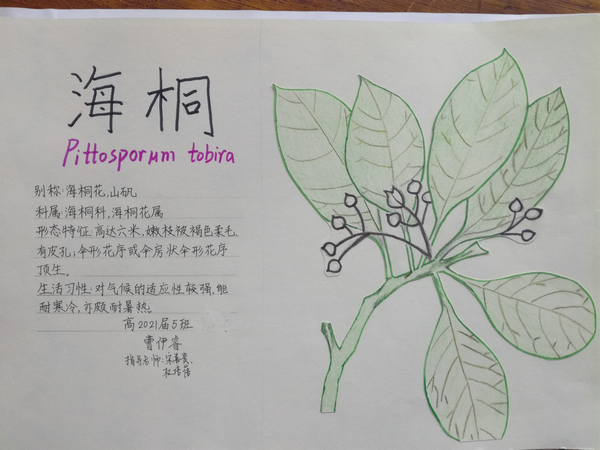 海桐
Pittosporum tobira
别称:海桐花,山矾
科属:海桐科,海桐花属
形态特征:高达六米,嫩枝被褐色柔毛,
有皮孔;伞形花序或伞房状伞形花序
顶生。
生活习性:对气候的适应性较强,能
耐寒冷,亦颇耐暑热。
高2021届5班
曹伊睿
指导老师: